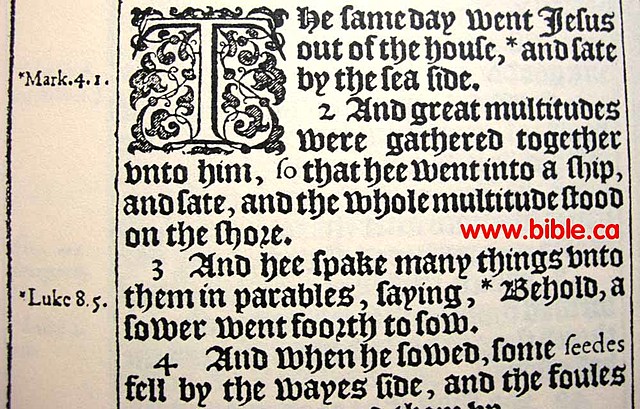 The ſame day went Jeſus
out of the houſe,* and ſate
*Mark.4.1.
by the ſea ſide.
2 And great multitudes
were gathered together
vnto him, ſo that hee went into a ſhip,
and ſate, and the whole multitude ſtood
on the ſhore.
www.bible.ca
3 And hee ſpake many things vnto
*Luke 8.5.
them in parables, ſaying, * Behold, a
ſower went foorth to ſow.
4 And when he ſowed, ſome ſeedes
fell by the wayes ſide, and the foules